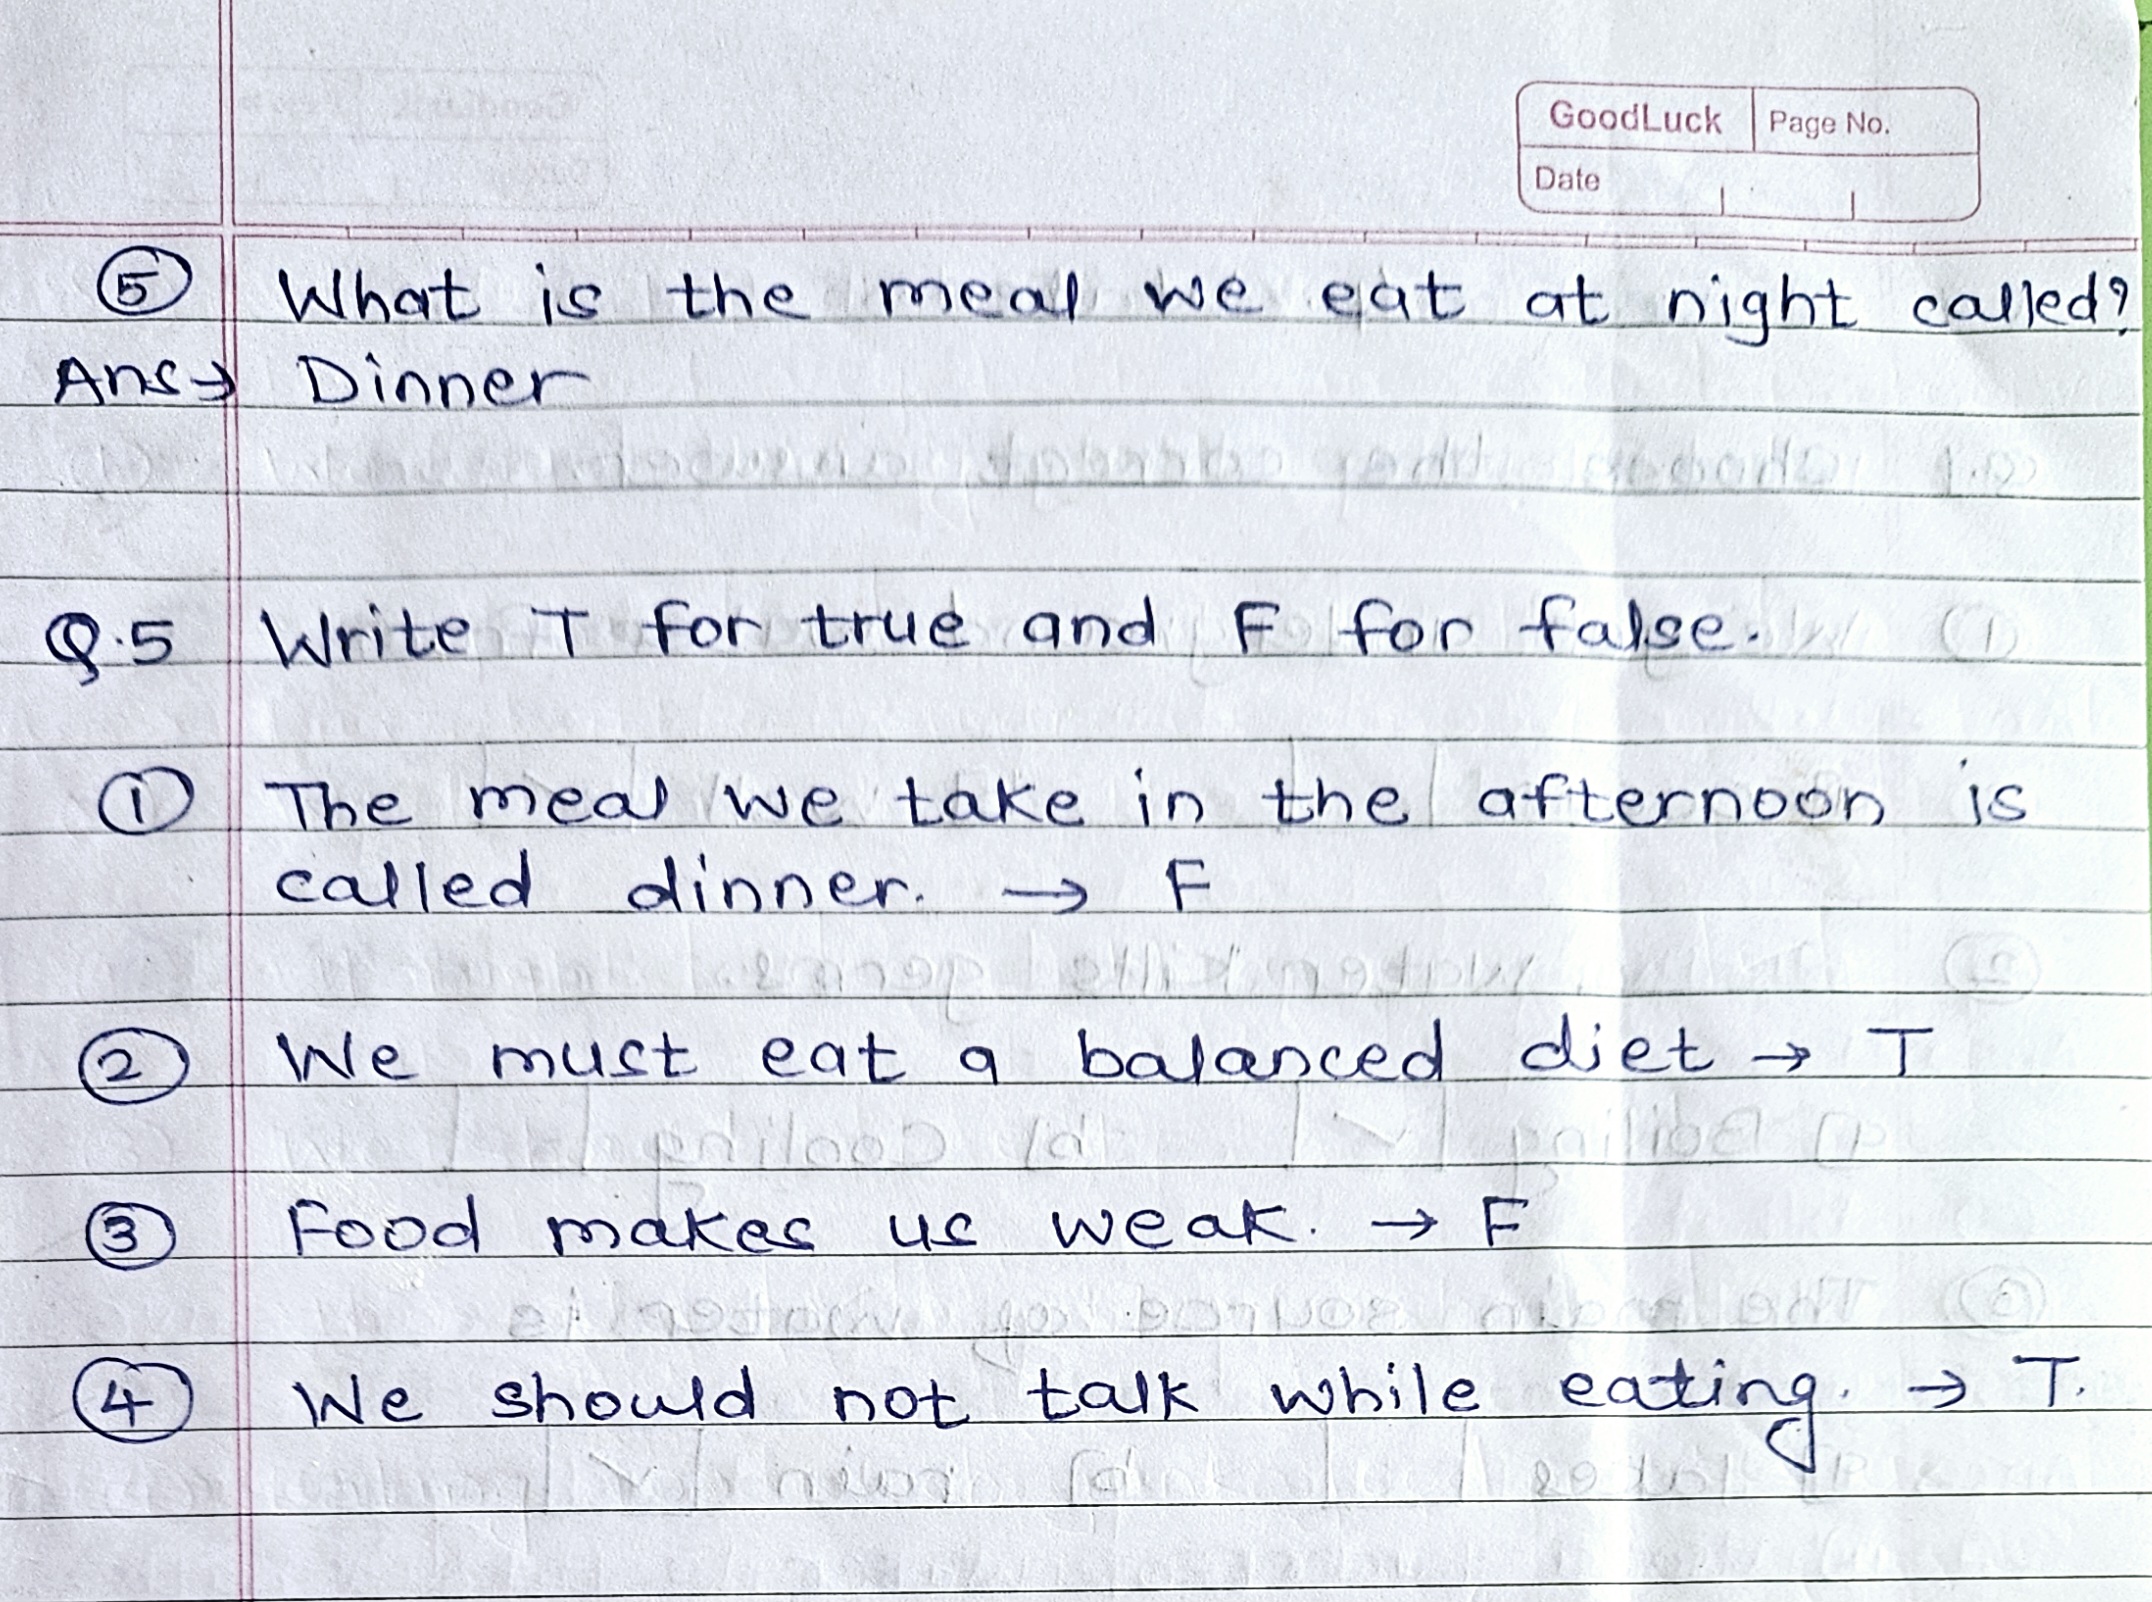 GoodLuck Page No.
Date
⑤ What is the meal we eat at night called?
Ans → Dinner
Q.5 Write T for true and F for false.
① The meal we take in the afternoon is
called dinner. → F
② We must eat a balanced diet → T
③ Food makes us weak. → F
④ We should not talk while eating. → T.